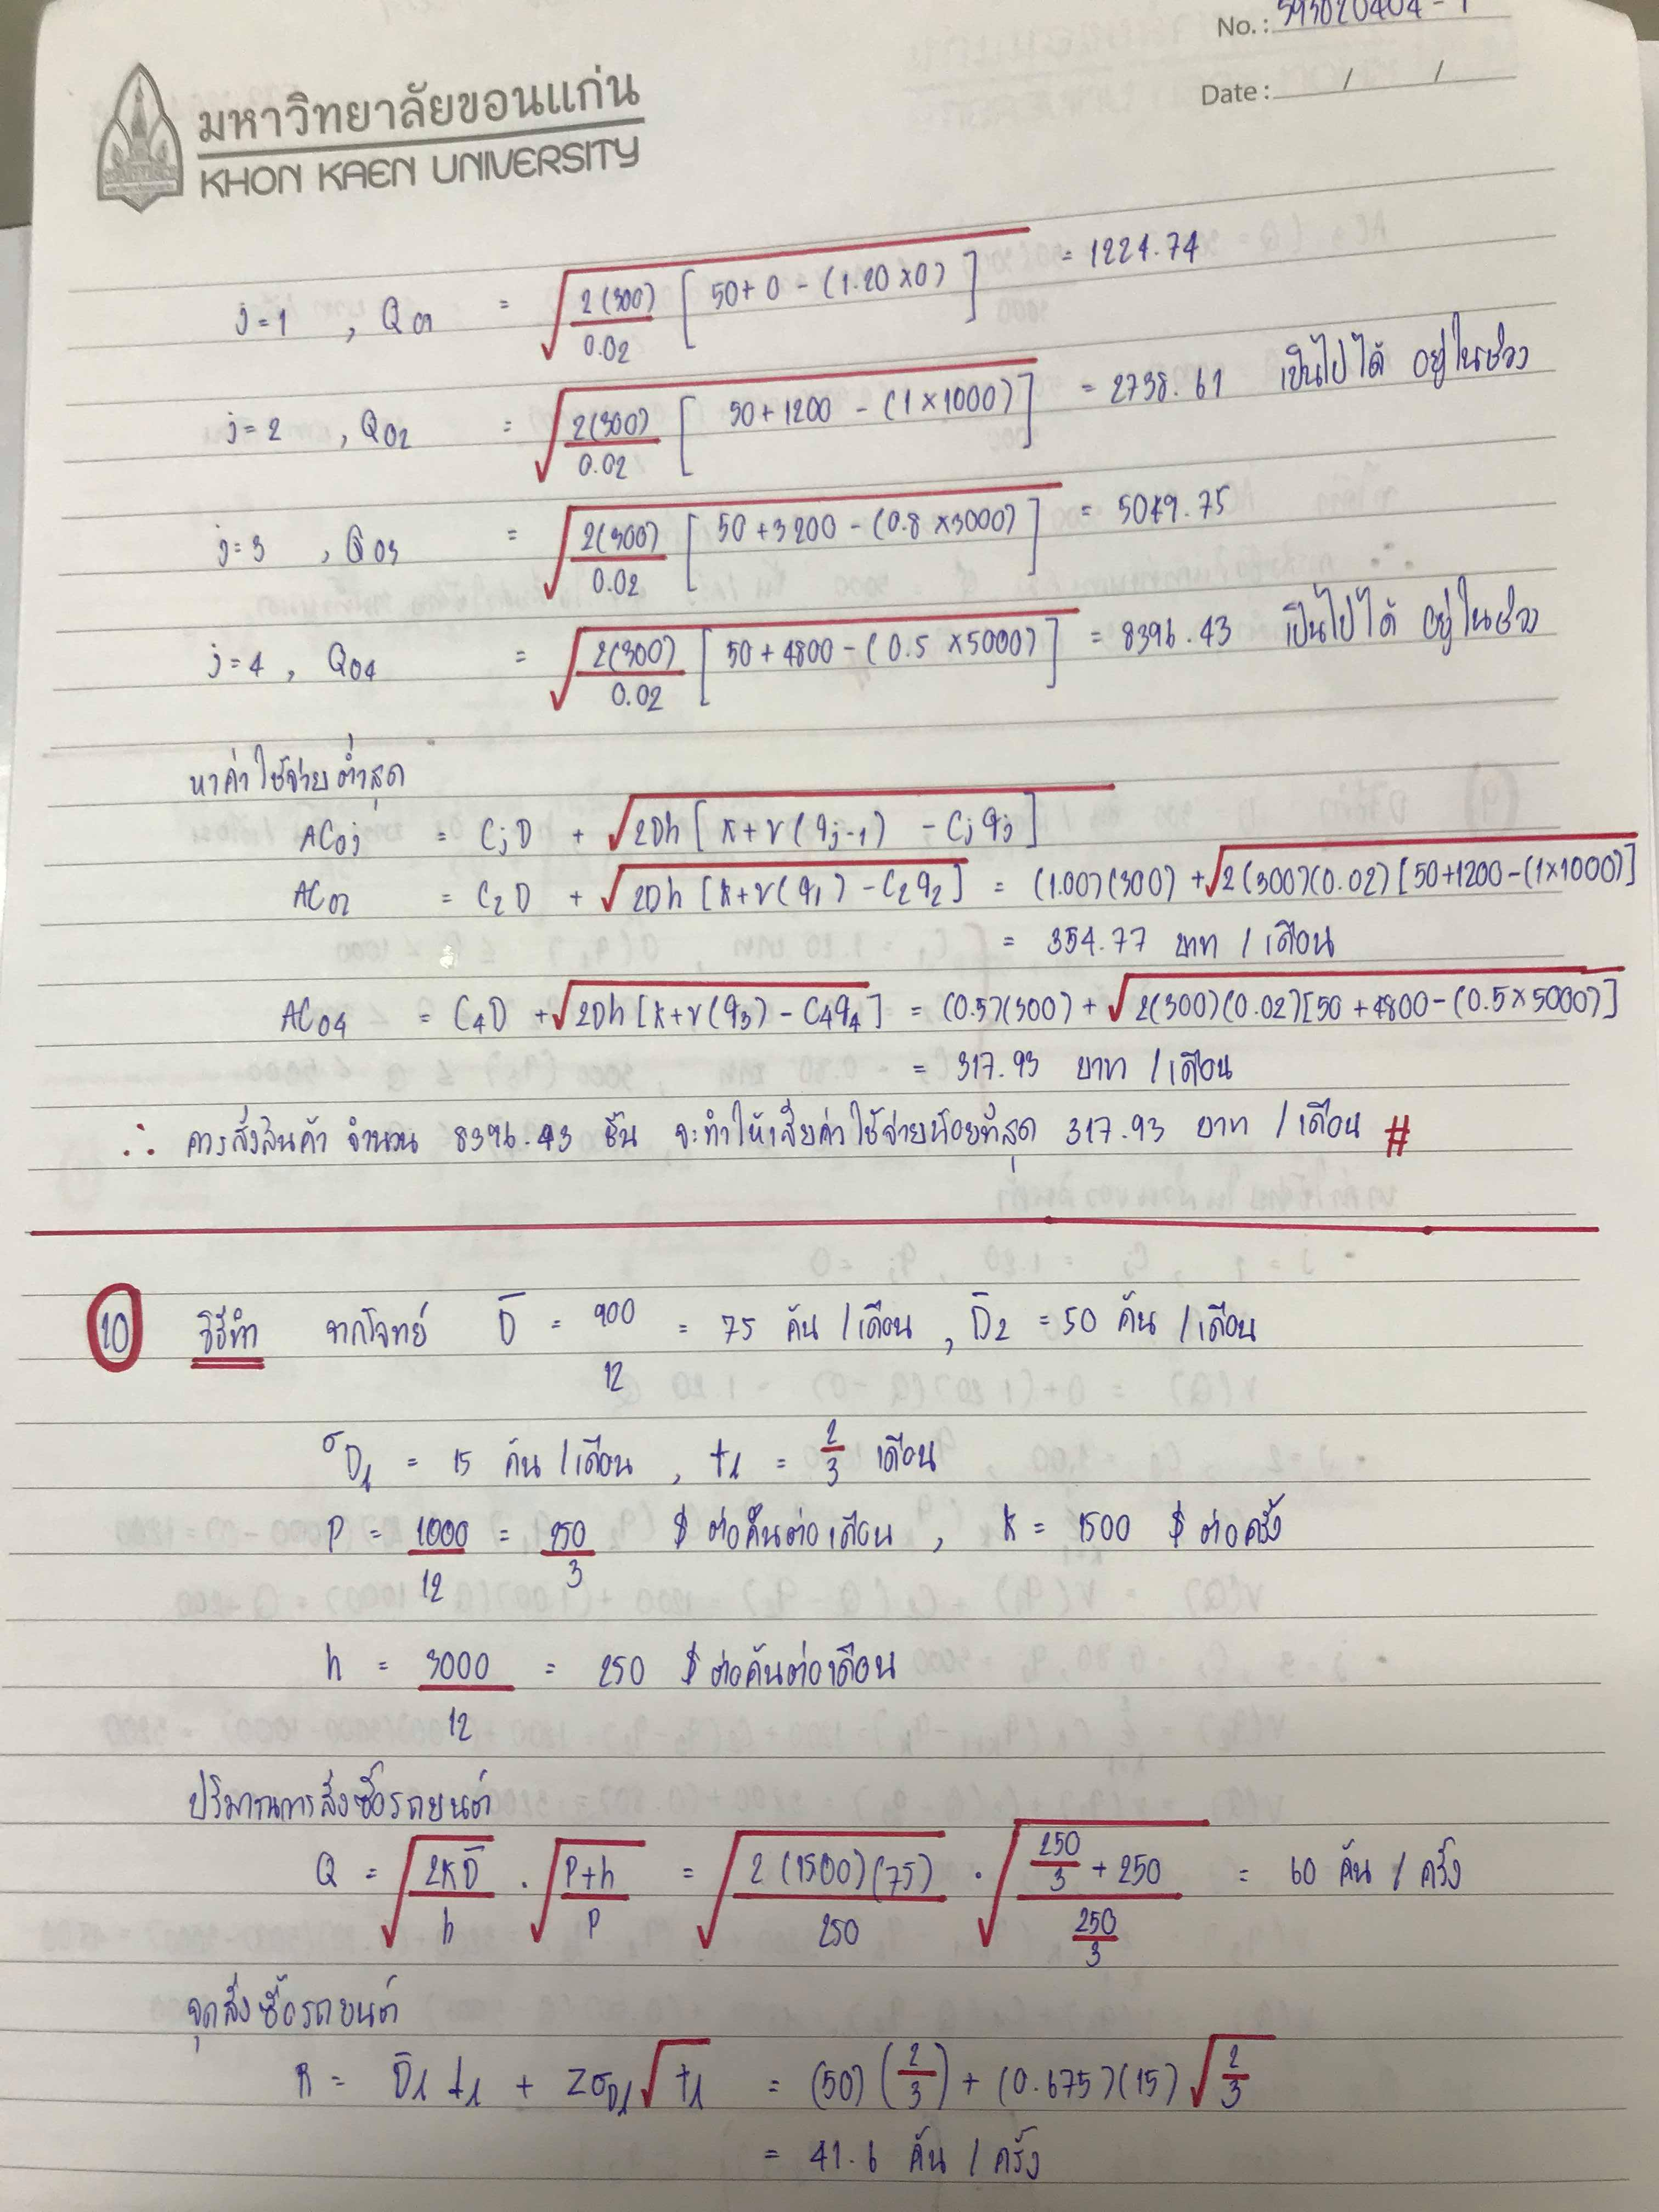 No.: 593020404-1
Date : / /
มหาวิทยาลัยขอนแก่น
KHON KAEN UNIVERSITY
j=1 , Q01 = √(2(300)/0.02 [50+0-(1.20×0)]) = 1224.74
j=2 , Q02 = √(2(300)/0.02 [50+1200-(1×1000)]) = 2738.61 เป็นไปได้ อยู่ในช่วง
j=3 , Q03 = √(2(300)/0.02 [50+3200-(0.8×3000)]) = 5049.75
j=4 , Q04 = √(2(300)/0.02 [50+4800-(0.5×5000)]) = 8396.43 เป็นไปได้ อยู่ในช่วง
หาค่าใช้จ่ายต่ำสุด
AC0j = CjD + √(2Dh[K+V(qj-1) - Cjqj])
AC02 = C2D + √(2Dh[K+V(q1) - C2q2]) = (1.00)(300) + √(2(300)(0.02)[50+1200-(1×1000)])
= 354.77 บาท / เดือน
AC04 = C4D + √(2Dh[K+V(q3) - C4q4]) = (0.5)(300) + √(2(300)(0.02)[50+4800-(0.5×5000)])
= 317.93 บาท / เดือน
∴ ควรสั่งสินค้า จำนวน 8396.43 ชิ้น จะทำให้เสียค่าใช้จ่ายน้อยที่สุด 317.93 บาท / เดือน #
10 วิธีทำ จากโจทย์ D̄ = 900/12 = 75 คัน / เดือน , D̄2 = 50 คัน / เดือน
σDl = 15 คัน / เดือน , tl = 2/3 เดือน
P = 1000/12 = 250/3 $ ต่อคันต่อเดือน , K = 1500 $ ต่อครั้ง
h = 3000/12 = 250 $ ต่อคันต่อเดือน
ปริมาณการสั่งซื้อรถยนต์
Q = √(2KD̄/h) · √((P+h)/P) = √(2(1500)(75)/250) · √((250/3 + 250)/(250/3)) = 60 คัน / ครั้ง
จุดสั่งซื้อรถยนต์
R = D̄l tl + ZσDl √tl = (50)(2/3) + (0.675)(15)√(2/3)
= 41.6 คัน / ครั้ง